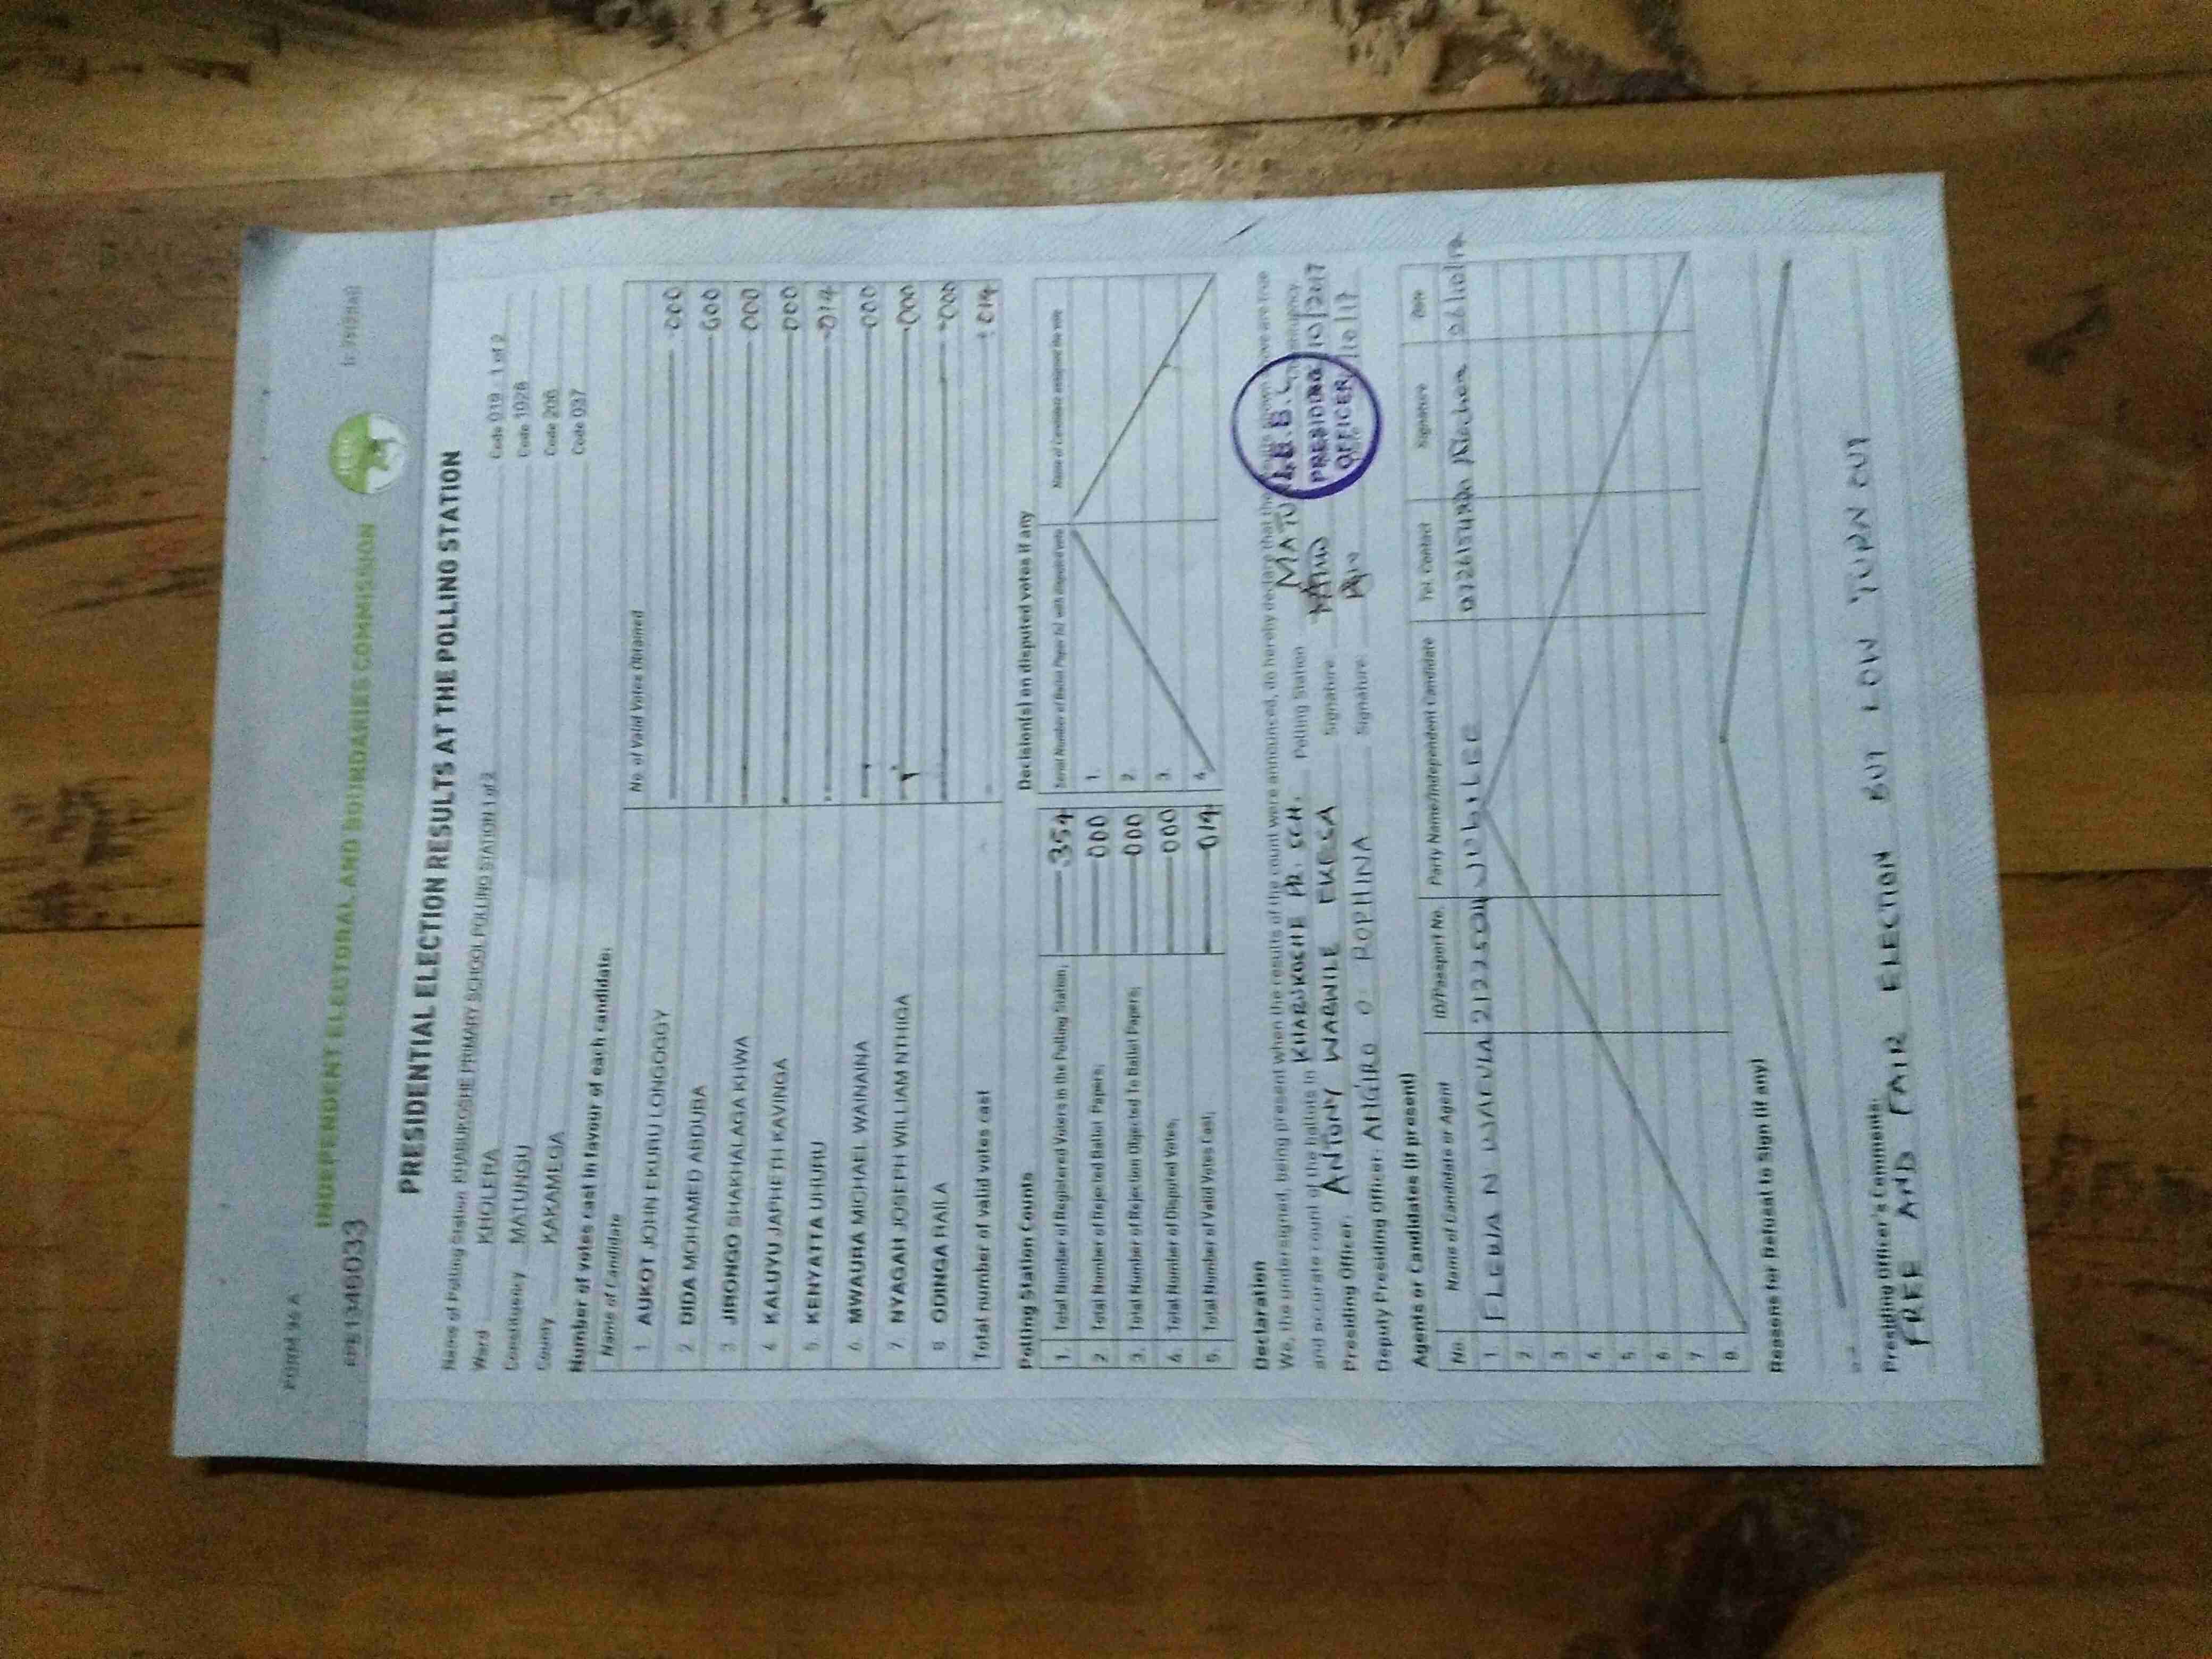 FORM 34 A
INDEPENDENT ELECTORAL AND BOUNDARIES COMMISSION
PRESIDENTIAL ELECTION RESULTS AT THE POLLING STATION
Name of Polling Station KHABUKOSHE PRIMARY SCHOOL POLLING STATION 1 of 2 Code 019 - 1 of 2
Ward KHOLERA Code 1028
Constituency MATUNGU Code 206
County KAKAMEGA Code 037
Number of votes cast in favour of each candidate:
Name of Candidate No. of Valid Votes Obtained
1 AUKOT JOHN EKURU LONGOGGY 000
2 DIDA MOHAMED ABDUBA 000
3 JIRONGO SHAKHALAGA KHWA 000
4 KALUYU JAPHETH KAVINGA 000
5 KENYATTA UHURU 014
6 MWAURA MICHAEL WAINAINA 000
7 NYAGAH JOSEPH WILLIAM NTHIGA 000
8 ODINGA RAILA 000
Total number of valid votes cast 014
Polling Station Counts
1. Total Number of Registered Voters in the Polling Station; 354
2. Total Number of Rejected Ballot Papers; 000
3. Total Number of Rejection Objected To Ballot Papers; 000
4. Total Number of Disputed Votes; 000
5. Total Number of Valid Votes Cast; 014
Decision(s) on disputed votes if any
Serial Number of Ballot Paper (s) with disputed vote Name of Candidate assigned the vote
1.
2.
3.
4.
Declaration
We, the undersigned, being present when the results of the count were announced, do hereby declare that the are true
and accurate count of the ballots in KHABUKOCHE PR. SCH. Polling Station
Presiding Officer: ANTONY WABWILE EKESA Signature: 10/2017
Deputy Presiding Officer: O. ROPHINA Signature: /10/17
I.E.B.C
PRESIDING
OFFICER
Agents or Candidates (if present)
No. Name of Candidate or Agent ID/Passport No. Party Name/Independent Candidate Tel. Contact Signature Date
1. JUBILEE 26/10/17
2
3
4
5
6
7
8
Reasons for Refusal to Sign (if any)
Presiding Officer's Comments:
FREE AND FAIR ELECTION BUT LOW TURN OUT